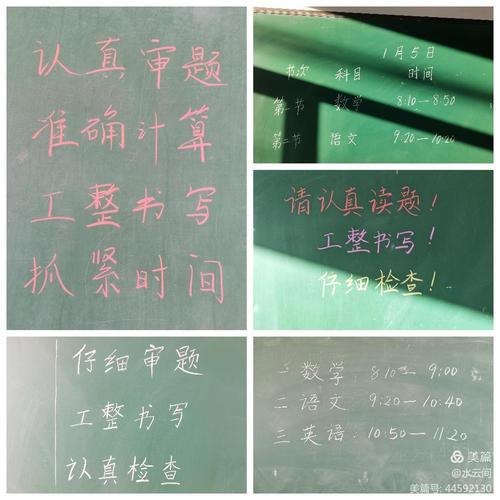 认真审题
准确计算
工整书写
抓紧时间
1月5日
节次 科目 时间
第一节 数学 8:10—8:50
第二节 语文 9:20—10:20
请认真读题!
工整书写!
仔细检查!
仔细审题
工整书写
认真检查
数学 8:10—9:00
二 语文 9:20—10:40
三 英语 10:50—11:20
美篇
@水云间
美篇号: 44592130